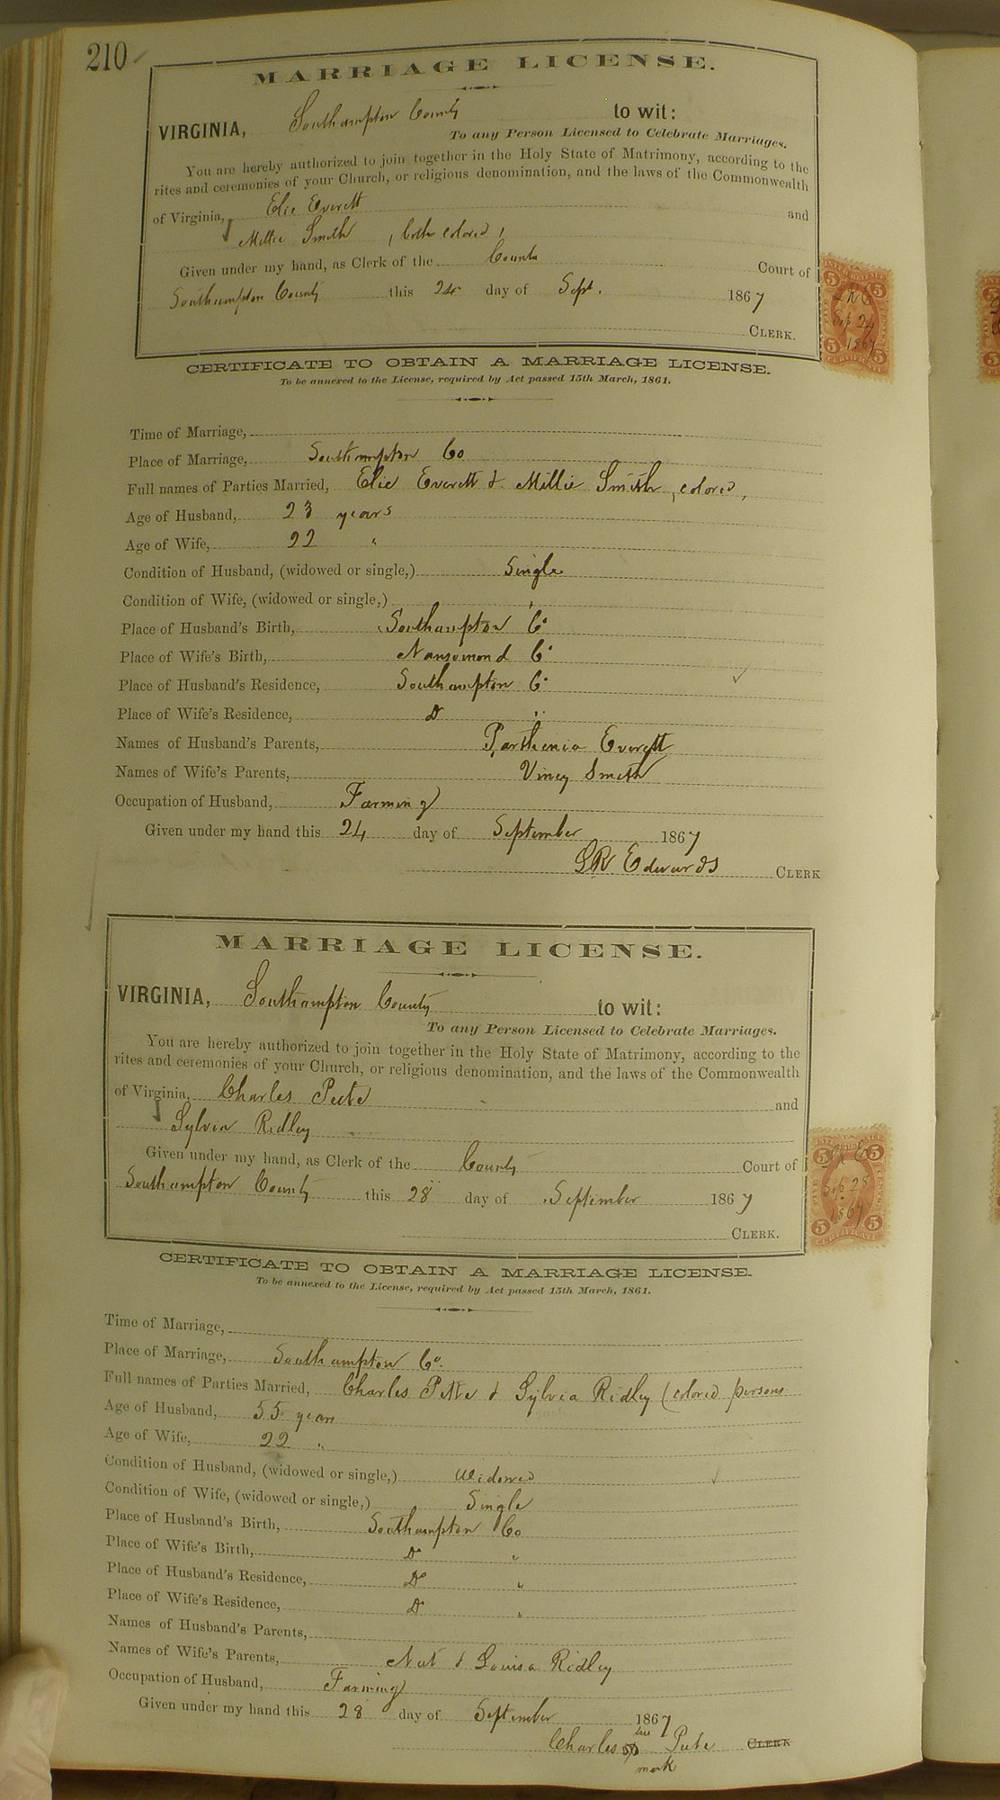 210
MARRIAGE LICENSE.
VIRGINIA, Southampton County to wit:
To any Person Licensed to Celebrate Marriages.
You are hereby authorized to join together in the Holy State of Matrimony, according to the
rites and ceremonies of your Church, or religious denomination, and the laws of the Commonwealth
of Virginia, Elie Everett and
Millie Smith , both colored,
Given under my hand, as Clerk of the County Court of
Southampton County this 24 day of Sept. 1867
CLERK.
5 5
Sep 24
1867
5 5
CERTIFICATE
CERTIFICATE TO OBTAIN A MARRIAGE LICENSE.
To be annexed to the License, required by Act passed 15th March, 1861.
Time of Marriage,
Place of Marriage, Southampton Co
Full names of Parties Married, Elie Everett & Millie Smith, colored,
Age of Husband, 23 years
Age of Wife, 22 "
Condition of Husband, (widowed or single,) Single
Condition of Wife, (widowed or single,) "
Place of Husband's Birth, Southampton Co
Place of Wife's Birth, Nansemond Co
Place of Husband's Residence, Southampton Co
Place of Wife's Residence, Do "
Names of Husband's Parents, Parthenia Everett
Names of Wife's Parents, Viney Smith
Occupation of Husband, Farming
Given under my hand this 24 day of September 1867
LR Edwards CLERK
MARRIAGE LICENSE.
VIRGINIA, Southampton County to wit:
To any Person Licensed to Celebrate Marriages.
You are hereby authorized to join together in the Holy State of Matrimony, according to the
rites and ceremonies of your Church, or religious denomination, and the laws of the Commonwealth
of Virginia, Charles Pete and
Sylvia Ridley
Given under my hand, as Clerk of the County Court of
Southampton County this 28 day of September 1867
CLERK.
5 5
Sep 28
1867
5 5
CERTIFICATE
CERTIFICATE TO OBTAIN A MARRIAGE LICENSE.
To be annexed to the License, required by Act passed 15th March, 1861.
Time of Marriage,
Place of Marriage, Southampton Co.
Full names of Parties Married, Charles Pete & Sylvia Ridley (colored persons
Age of Husband, 55 years
Age of Wife, 22 "
Condition of Husband, (widowed or single,) Widowed
Condition of Wife, (widowed or single,) Single
Place of Husband's Birth, Southampton Co
Place of Wife's Birth, Do "
Place of Husband's Residence, Do "
Place of Wife's Residence, Do "
Names of Husband's Parents,
Names of Wife's Parents, Nat & Louisa Ridley
Occupation of Husband, Farming
Given under my hand this 28 day of September 1867
his
Charles Pete CLERK
mark